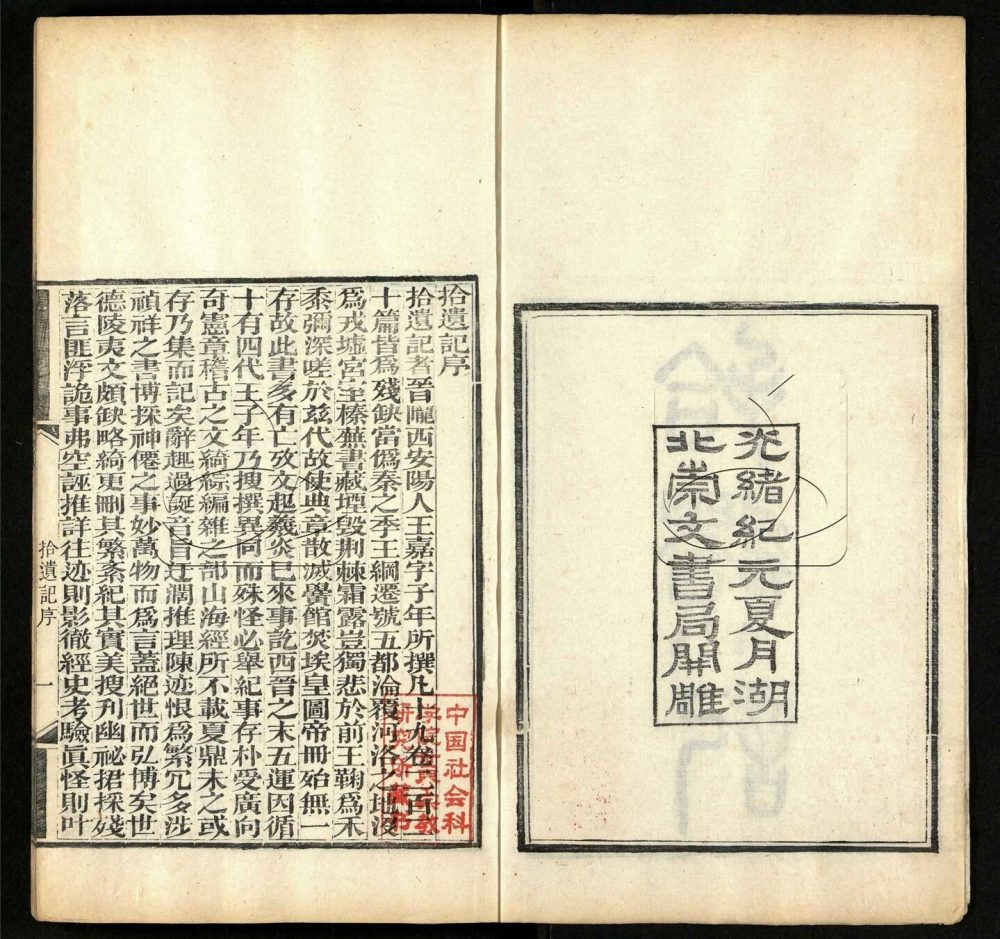 光緒紀元夏月湖
北崇文書局開雕
拾遺記序
拾遺記者晉隴西安陽人王嘉字子年所撰凡十九卷二百二
十篇皆爲殘缺當僞秦之季王綱遷號五都淪覆河洛之地沒
爲戎墟宮室榛蕪書藏堙毀荆棘霜露豈獨悲於前王鞠爲禾
黍彌深嗟於茲代故使典章散滅黌館焚埃皇圖帝冊殆無一
存故此書多有亡攷文起羲炎已來事訖西晉之末五運因循
十有四代王子年乃搜撰異同而殊怪必舉紀事存朴受廣向
奇憲章稽古之文綺綜編雜之部山海經所不載夏鼎未之或
存乃集而記矣辭趣過誕音旨迂濶推理陳迹恨爲繁冗多涉
禎祥之書博採神僊之事妙萬物而爲言蓋絕世而弘博矣世
德陵夷文頗缺略綺更刪其繁紊紀其實美搜刋幽祕捃採殘
落言匪浮詭事弗空誣推詳往迹則影徹經史考驗眞怪則叶
拾遺記序 一
中国社会科
学院教
研究所藏书